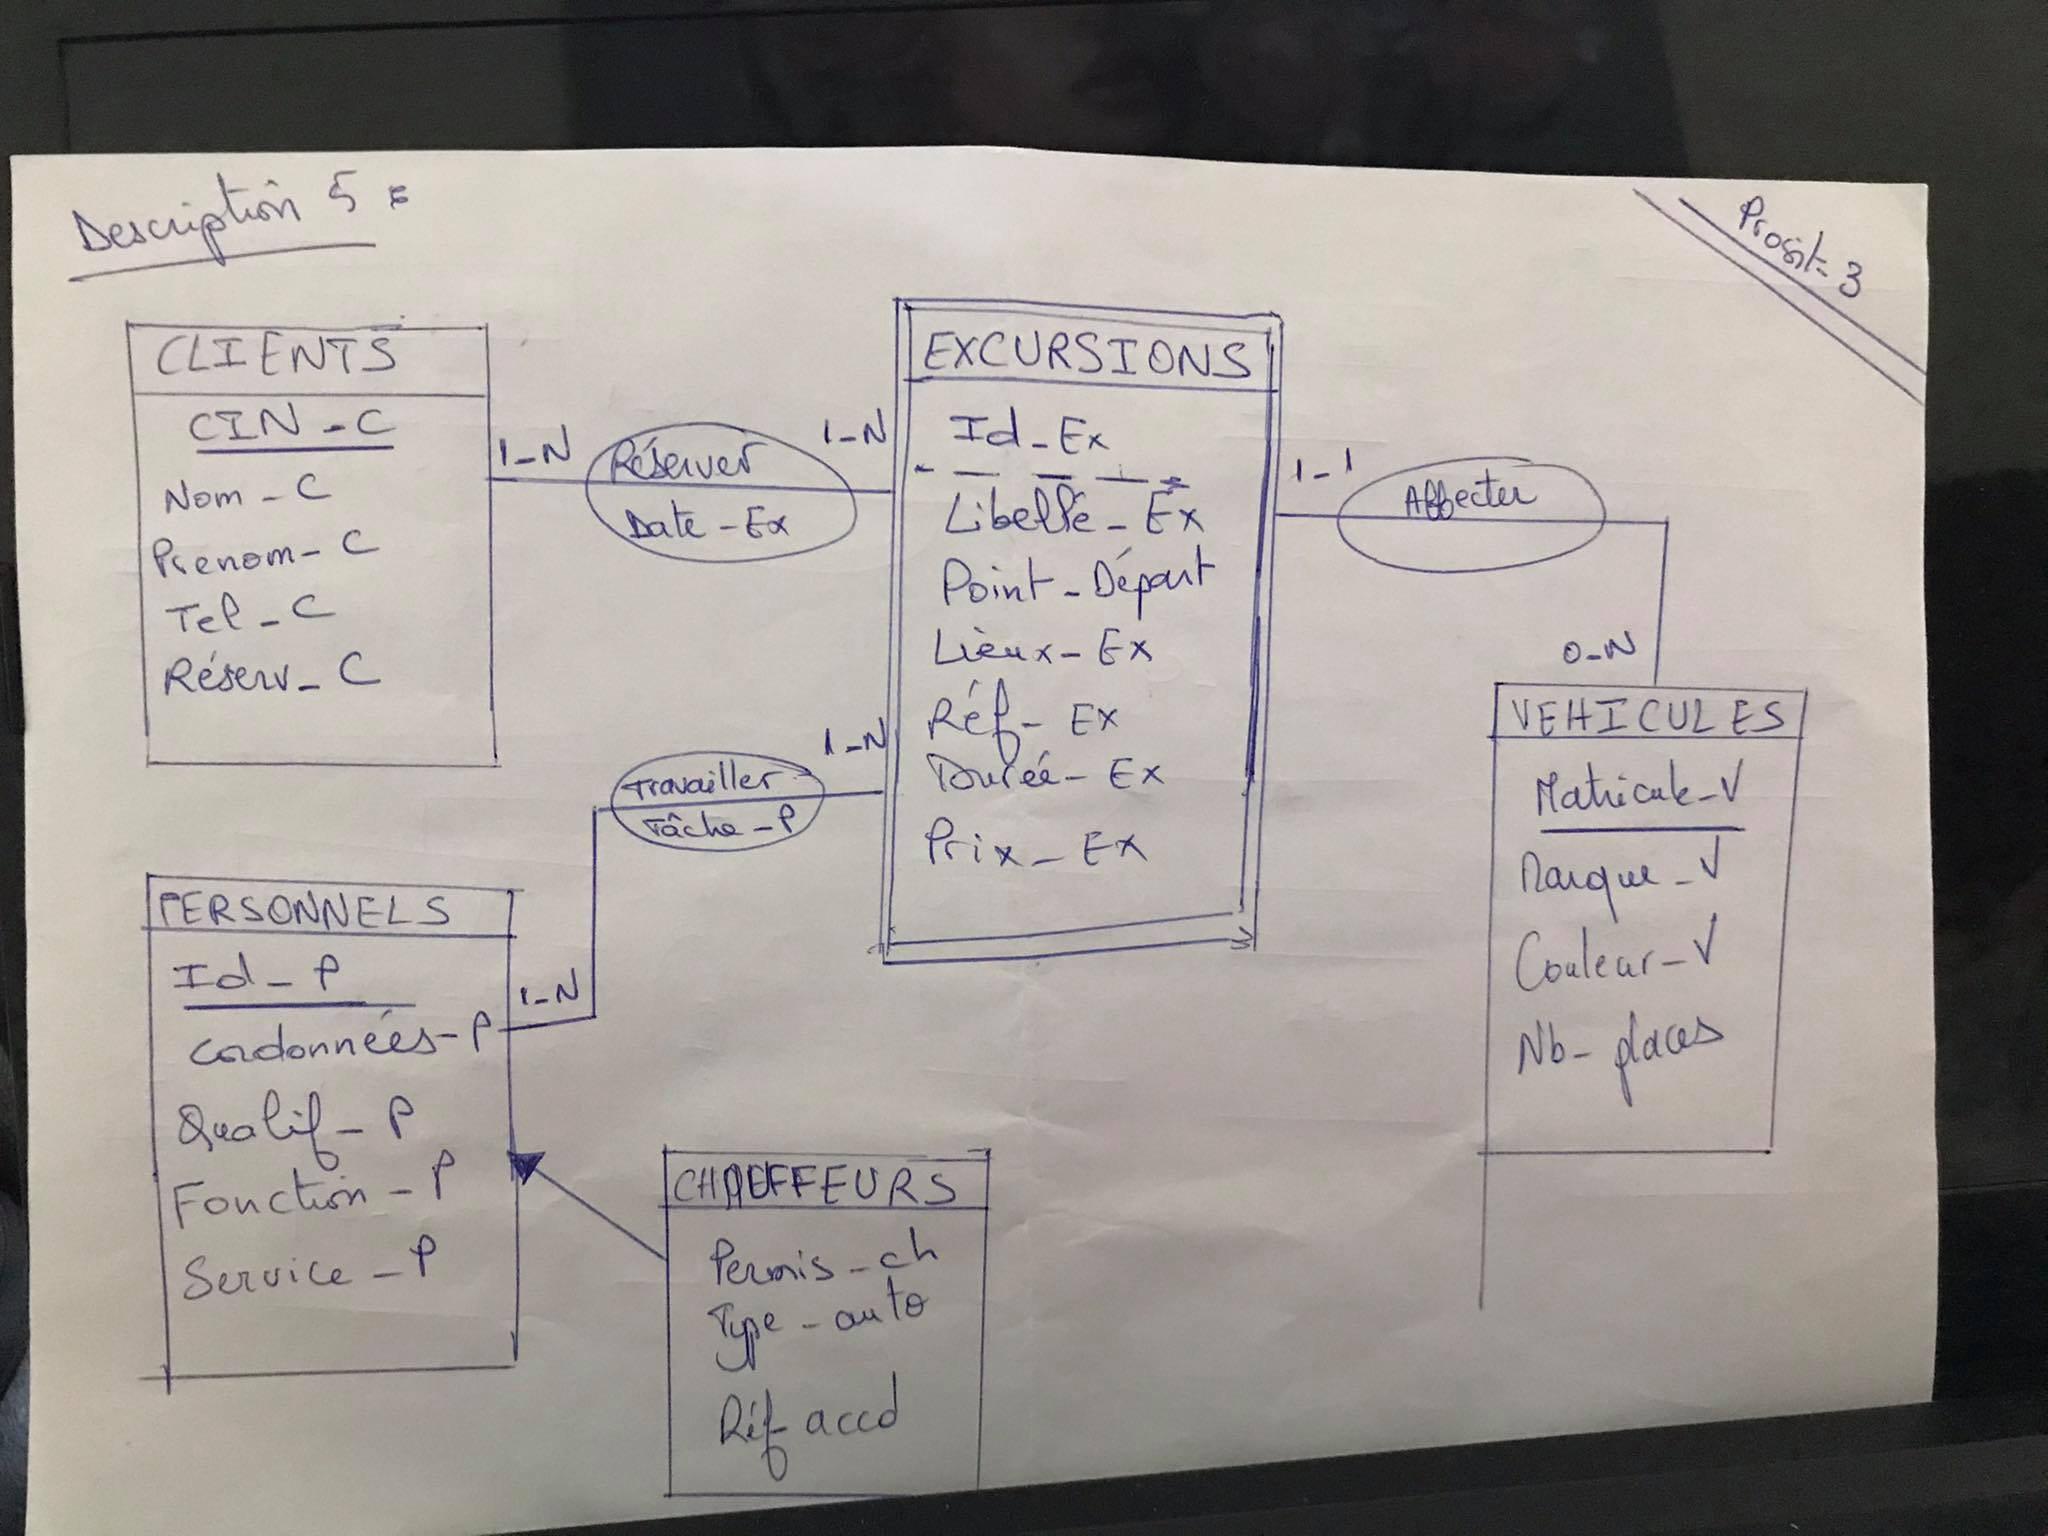 Description 5 :
Prosit-3
CLIENTS
CIN_C
Nom_C
Prenom_C
Tel_C
Réserv_C
1_N
Réserver
Date_Ex
1_N
EXCURSIONS
Id_Ex
Libellé_Ex
Point_Départ
Lieux_Ex
Réf_Ex
Durée_Ex
Prix_Ex
1_1
Affecter
0_N
VEHICULES
Matricule_V
Marque_V
Couleur_V
Nb_places
1_N
Travailler
Tâche_P
1_N
PERSONNELS
Id_P
Cordonnées_P
Qualif_P
Fonction_P
Service_P
CHAUFFEURS
Permis_ch
Type_auto
Réf_accd